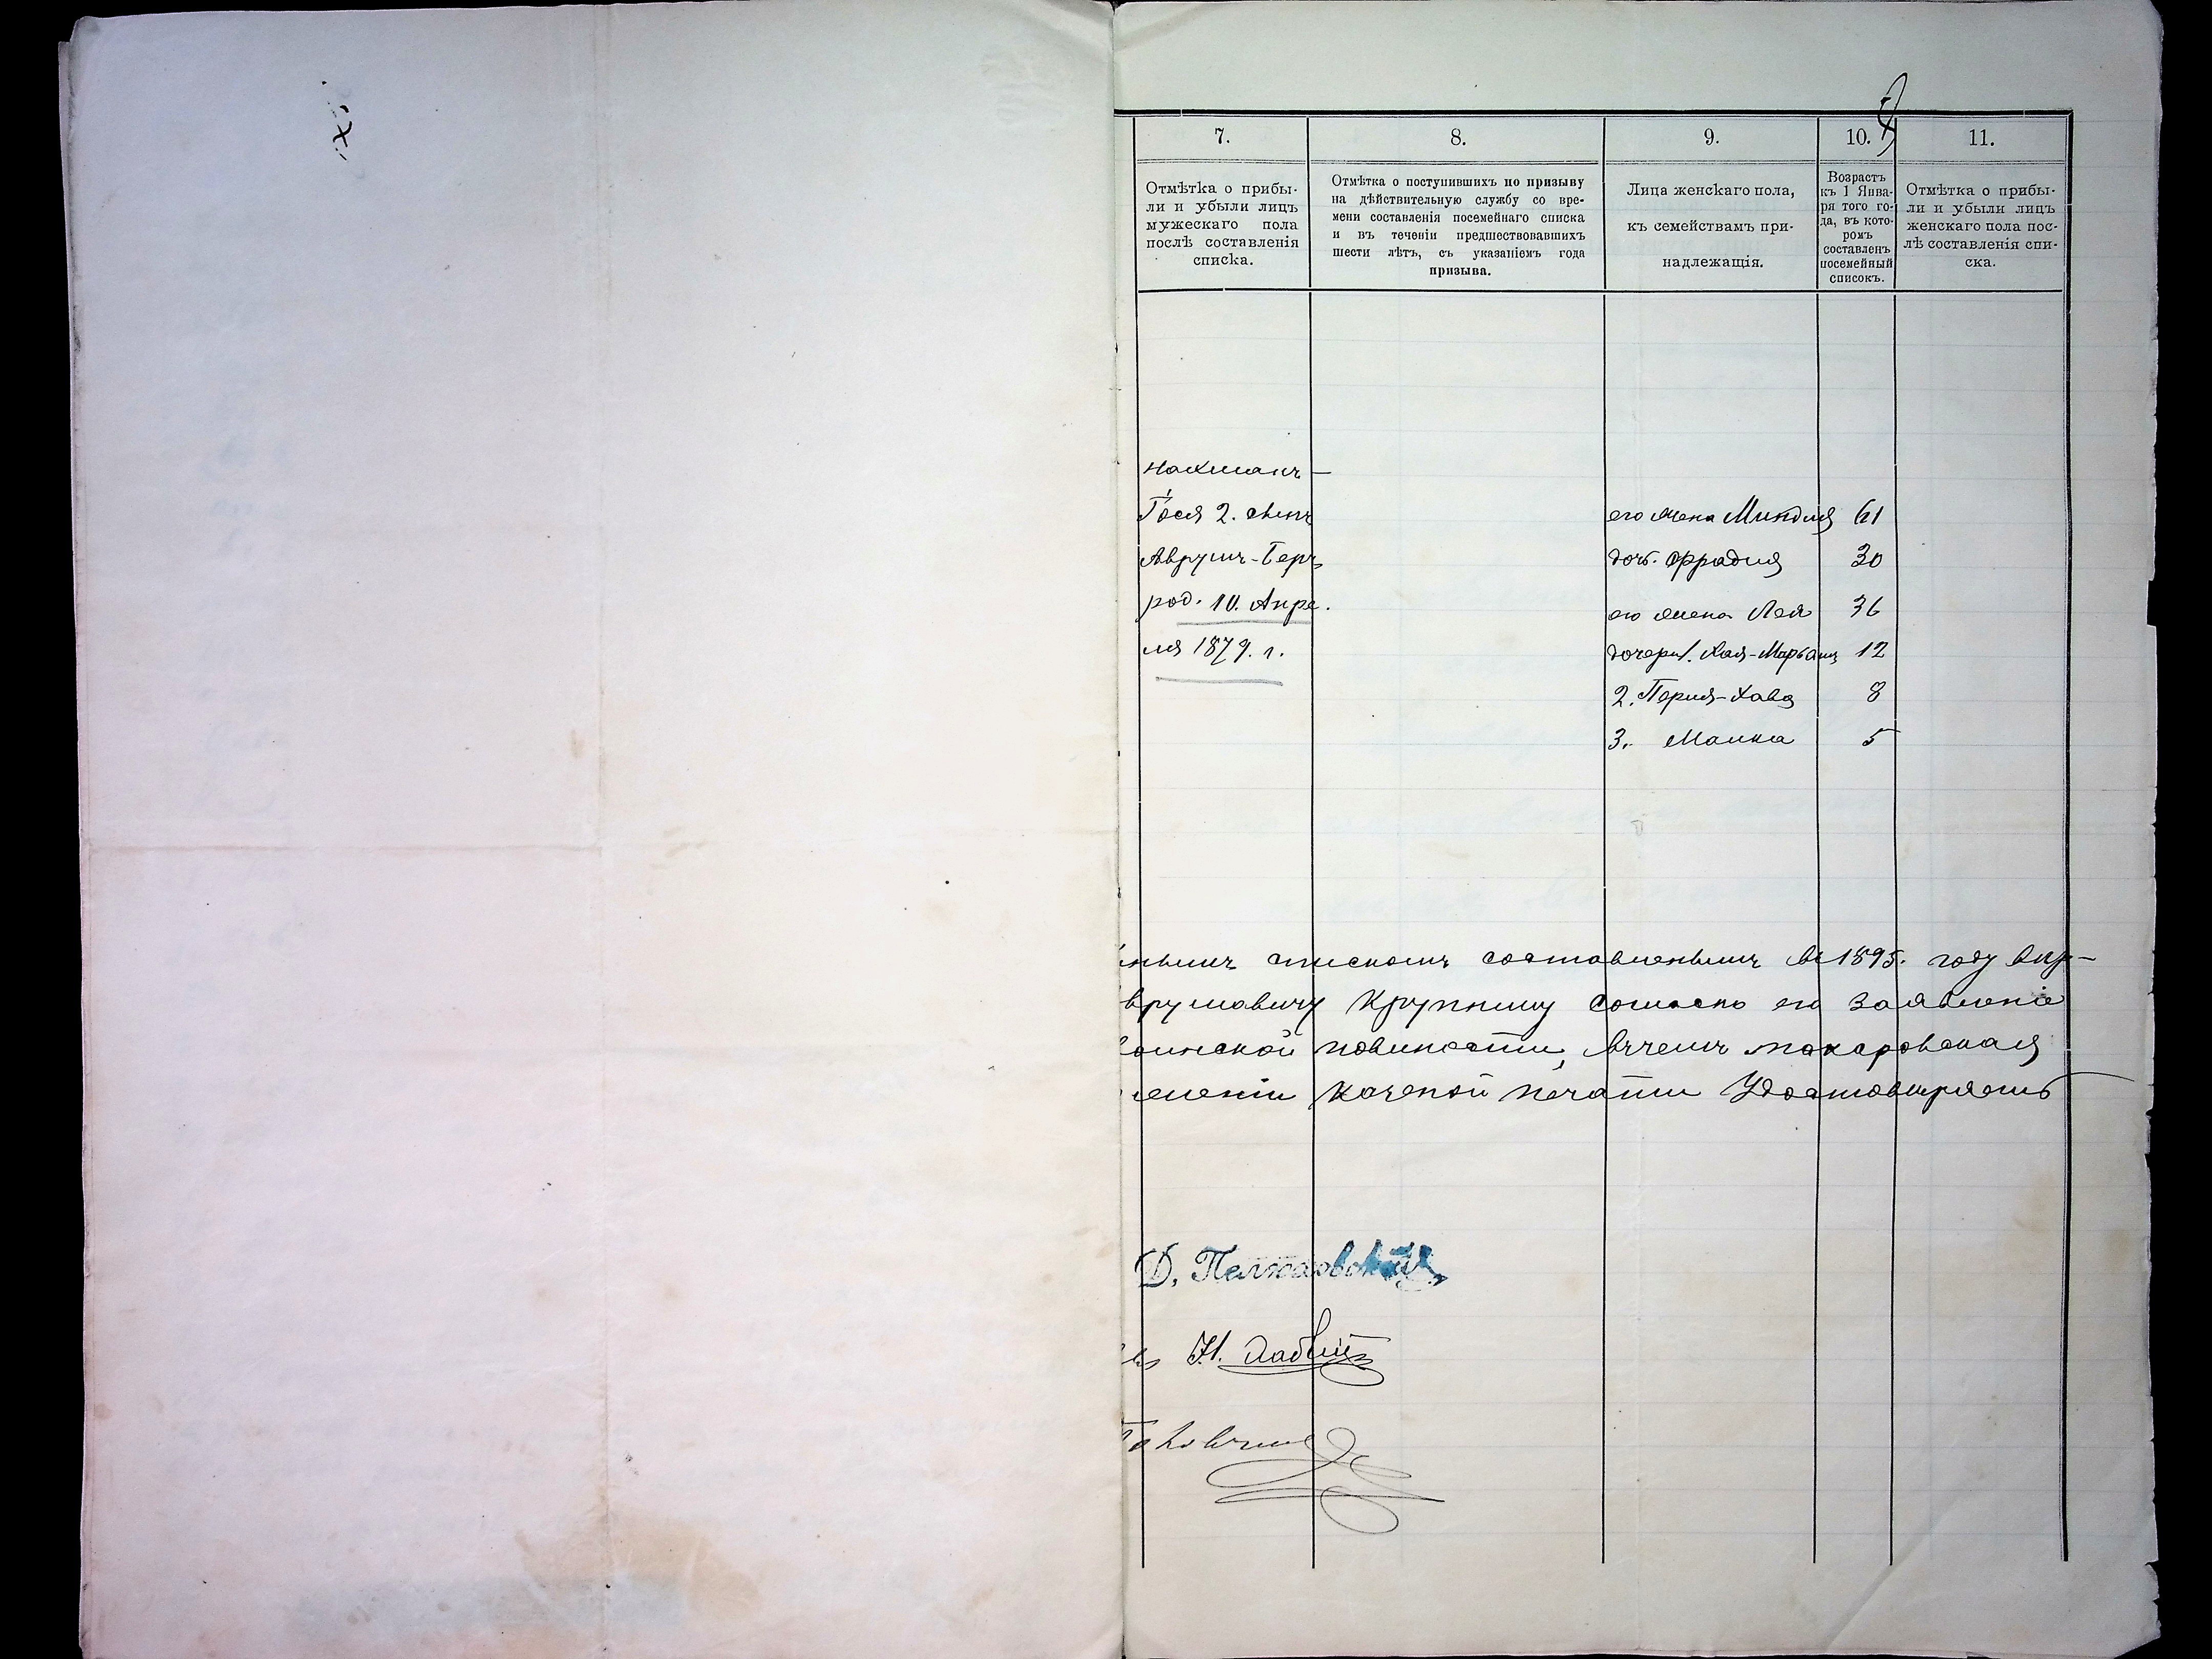 7.
8.
9.
10.
11.
Отмѣтка о прибы-
ли и убыли лицъ
мужескаго пола
послѣ составленія
списка.
Отмѣтка о поступившихъ по призыву
на дѣйствительную службу со вре-
мени составленія посемейнаго списка
и въ теченіи предшествовавшихъ
шести лѣтъ, съ указаніемъ года
призыва.
Лица женскаго пола,
къ семействамъ при-
надлежащія.
Возрастъ
къ 1 Янва-
ря того го-
да, въ кото-
ромъ
составленъ
посемейный
списокъ.
Отмѣтка о прибы-
ли и убыли лицъ
женскаго пола пос-
лѣ составленія спи-
ска.
Нахманъ-
2. сынъ
Аврумъ-Беръ
род. 10. Апрѣ-
ля 1879. г.
его жена Миндля 61
дочь. Фрадля 30
его жена Лея 36
дочери 1. Хая-Марьямъ 12
2. Перля-Хава 8
3. Малка 5
спискомъ составленнымъ въ 1895. году
Крупнику согласно его заявленіе
воинской повинности, въ чемъ
казеной печати Удостовѣряетъ
Д.